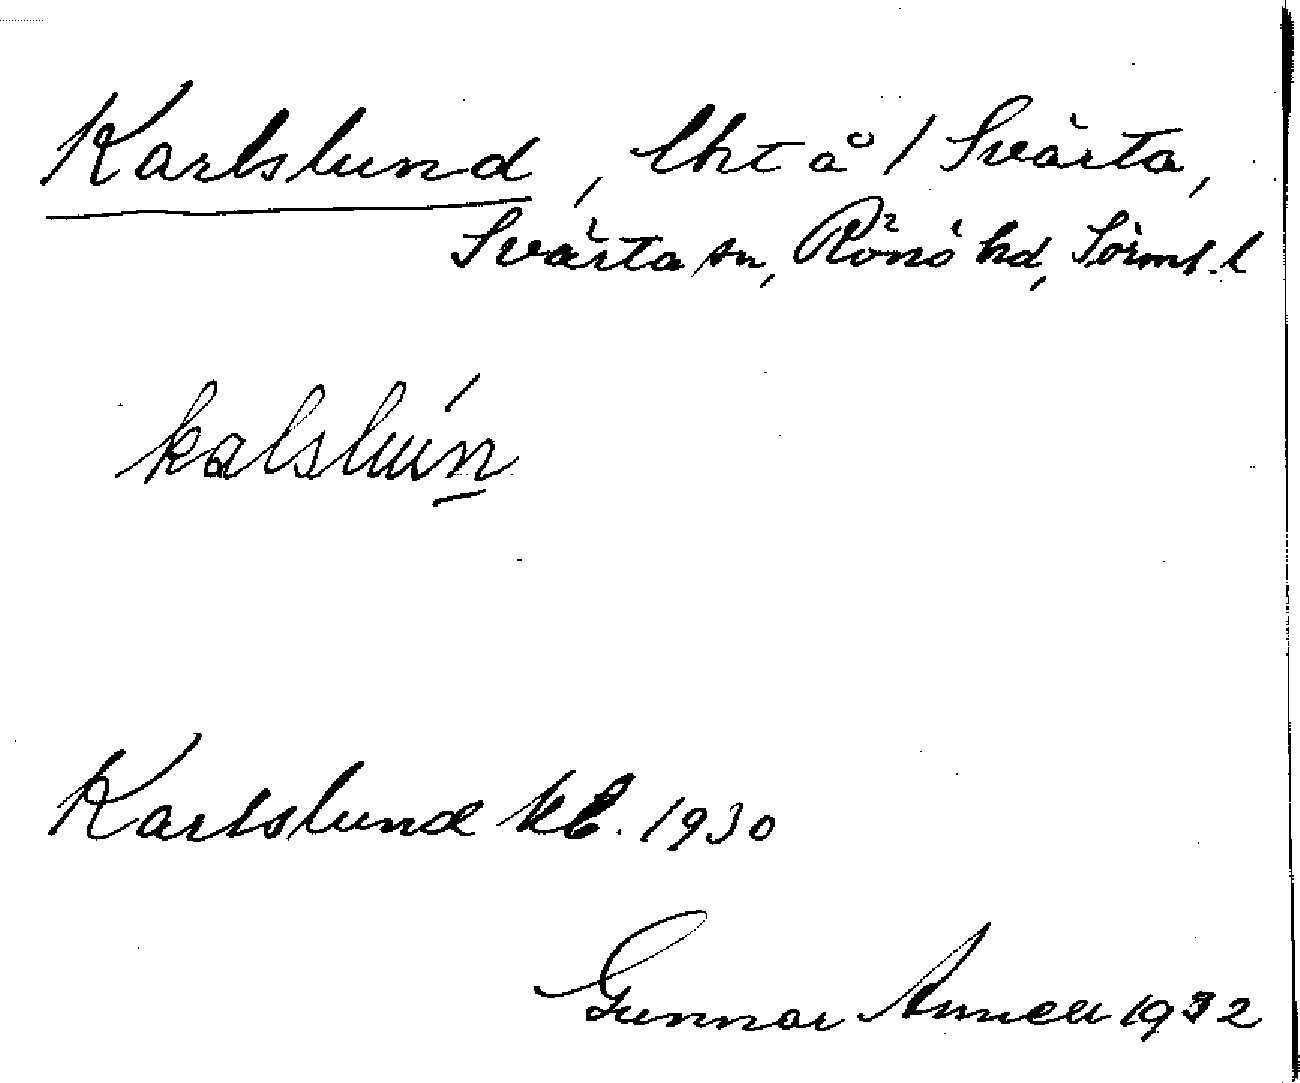 Karlslund, lht å / Svärta,
Svärta sn, Rönö hd, Sörml. l
kalslun
Karlslund kb. 1930
Gunnar Annell 1932